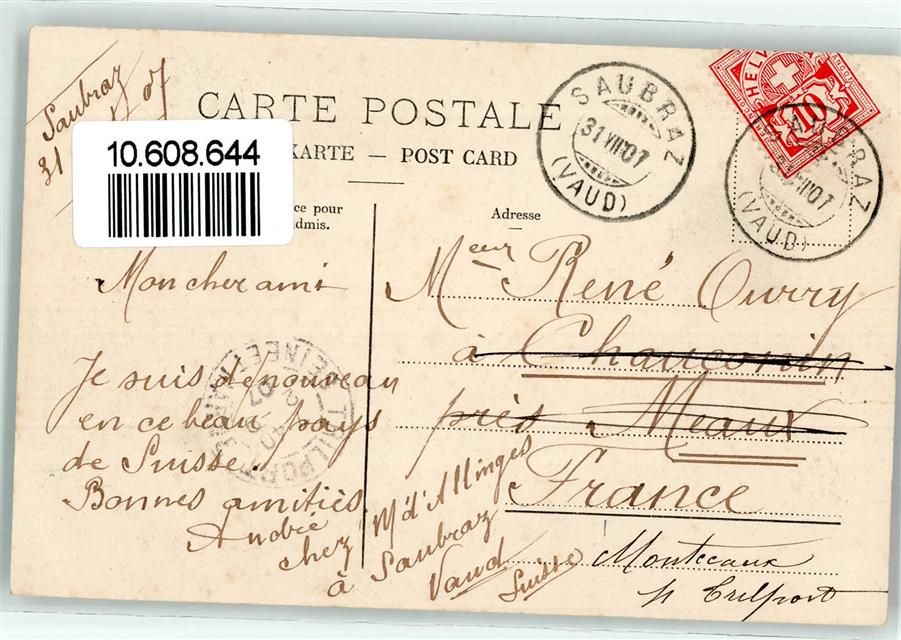 Saubraz
31
07
CARTE POSTALE
10.608.644
KARTE — POST CARD
ce pour
dmis.
Adresse
SAUBRAZ
31 VIII 07
(VAUD)
HELV
10
RAZ
VIII 07
(VAUD)
Mon cher ami
Je suis de nouveau
en ce beau pays
de Suisse.
Bonnes amitiés
André
chez Mr d'Allinges
à Saubraz
Vaud
Suisse
Meur René Ourry
à Chauconin
près Meaux
France
Montceaux
p/ Trilport
TRILPORT
07